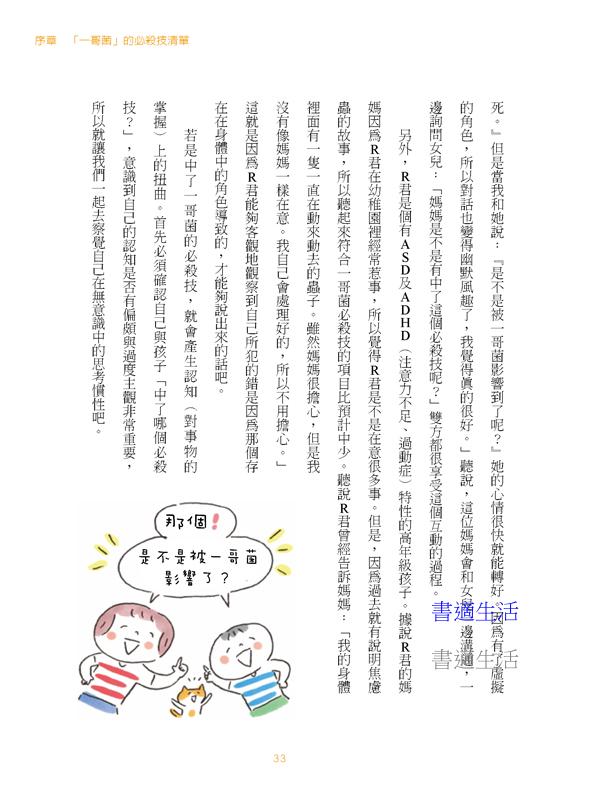 序章 「一哥菌」的必殺技清單
死。』但是當我和她說:『是不是被一哥菌影響到了呢?』她的心情很快就能轉好。因爲有了虛擬
的角色,所以對話也變得幽默風趣了,我覺得眞的很好。」聽說,這位媽媽會和女兒邊溝通,一
邊詢問女兒:「媽媽是不是有中了這個必殺技呢?」雙方都很享受這個互動的過程。
另外,R君是個有ASD及ADHD(注意力不足、過動症)特性的高年級孩子。據說R君的媽
媽因爲R君在幼稚園裡經常惹事,所以覺得R君是不是在意很多事。但是,因爲過去就有說明焦慮
蟲的故事,所以聽起來符合一哥菌必殺技的項目比預計中少。聽說R君曾經告訴媽媽:「我的身體
裡面有一隻一直在動來動去的蟲子。雖然媽媽很擔心,但是我
沒有像媽媽一樣在意。我自己會處理好的,所以不用擔心。」
這就是因爲R君能夠客觀地觀察到自己所犯的錯是因爲那個存
在在身體中的角色導致的,才能夠說出來的話吧。
若是中了一哥菌的必殺技,就會產生認知(對事物的
掌握)上的扭曲。首先必須確認自己與孩子「中了哪個必殺
技?」,意識到自己的認知是否有偏頗與過度主觀非常重要,
所以就讓我們一起去察覺自己在無意識中的思考慣性吧。
那個!
是不是被一哥菌
影響了?
書適生活
書適生活
33